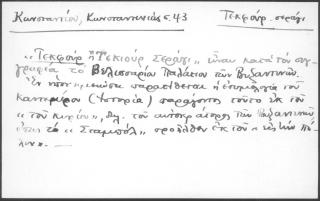 Κωνσταντίου, Κωνσταντινιὰς σ. 43 Τεκφούρ σεράγι
"Τεκφοὺρ ἢ Τεκιοὺρ Σεράγι" εἶναι κατὰ τὸν συγ-
γραφέα τὸ Βελισσαρίου Παλάτιον τῶν Βυζαντινῶν.
Ἐν παρατίθεται ἡ ἐτυμολογία τοῦ
Καντεμίρου (Ἱστορία) παράγοντος τοῦτο ἐκ τοῦ
"τοῦ κυρίου", δηλ. τοῦ αὐτοκράτορος τῶν Βυζαντινῶν
ὅπως τὸ "Σταμπὸλ" προῆλθεν ἐκ τοῦ "εἰς τὴν Πό-
λιν". —